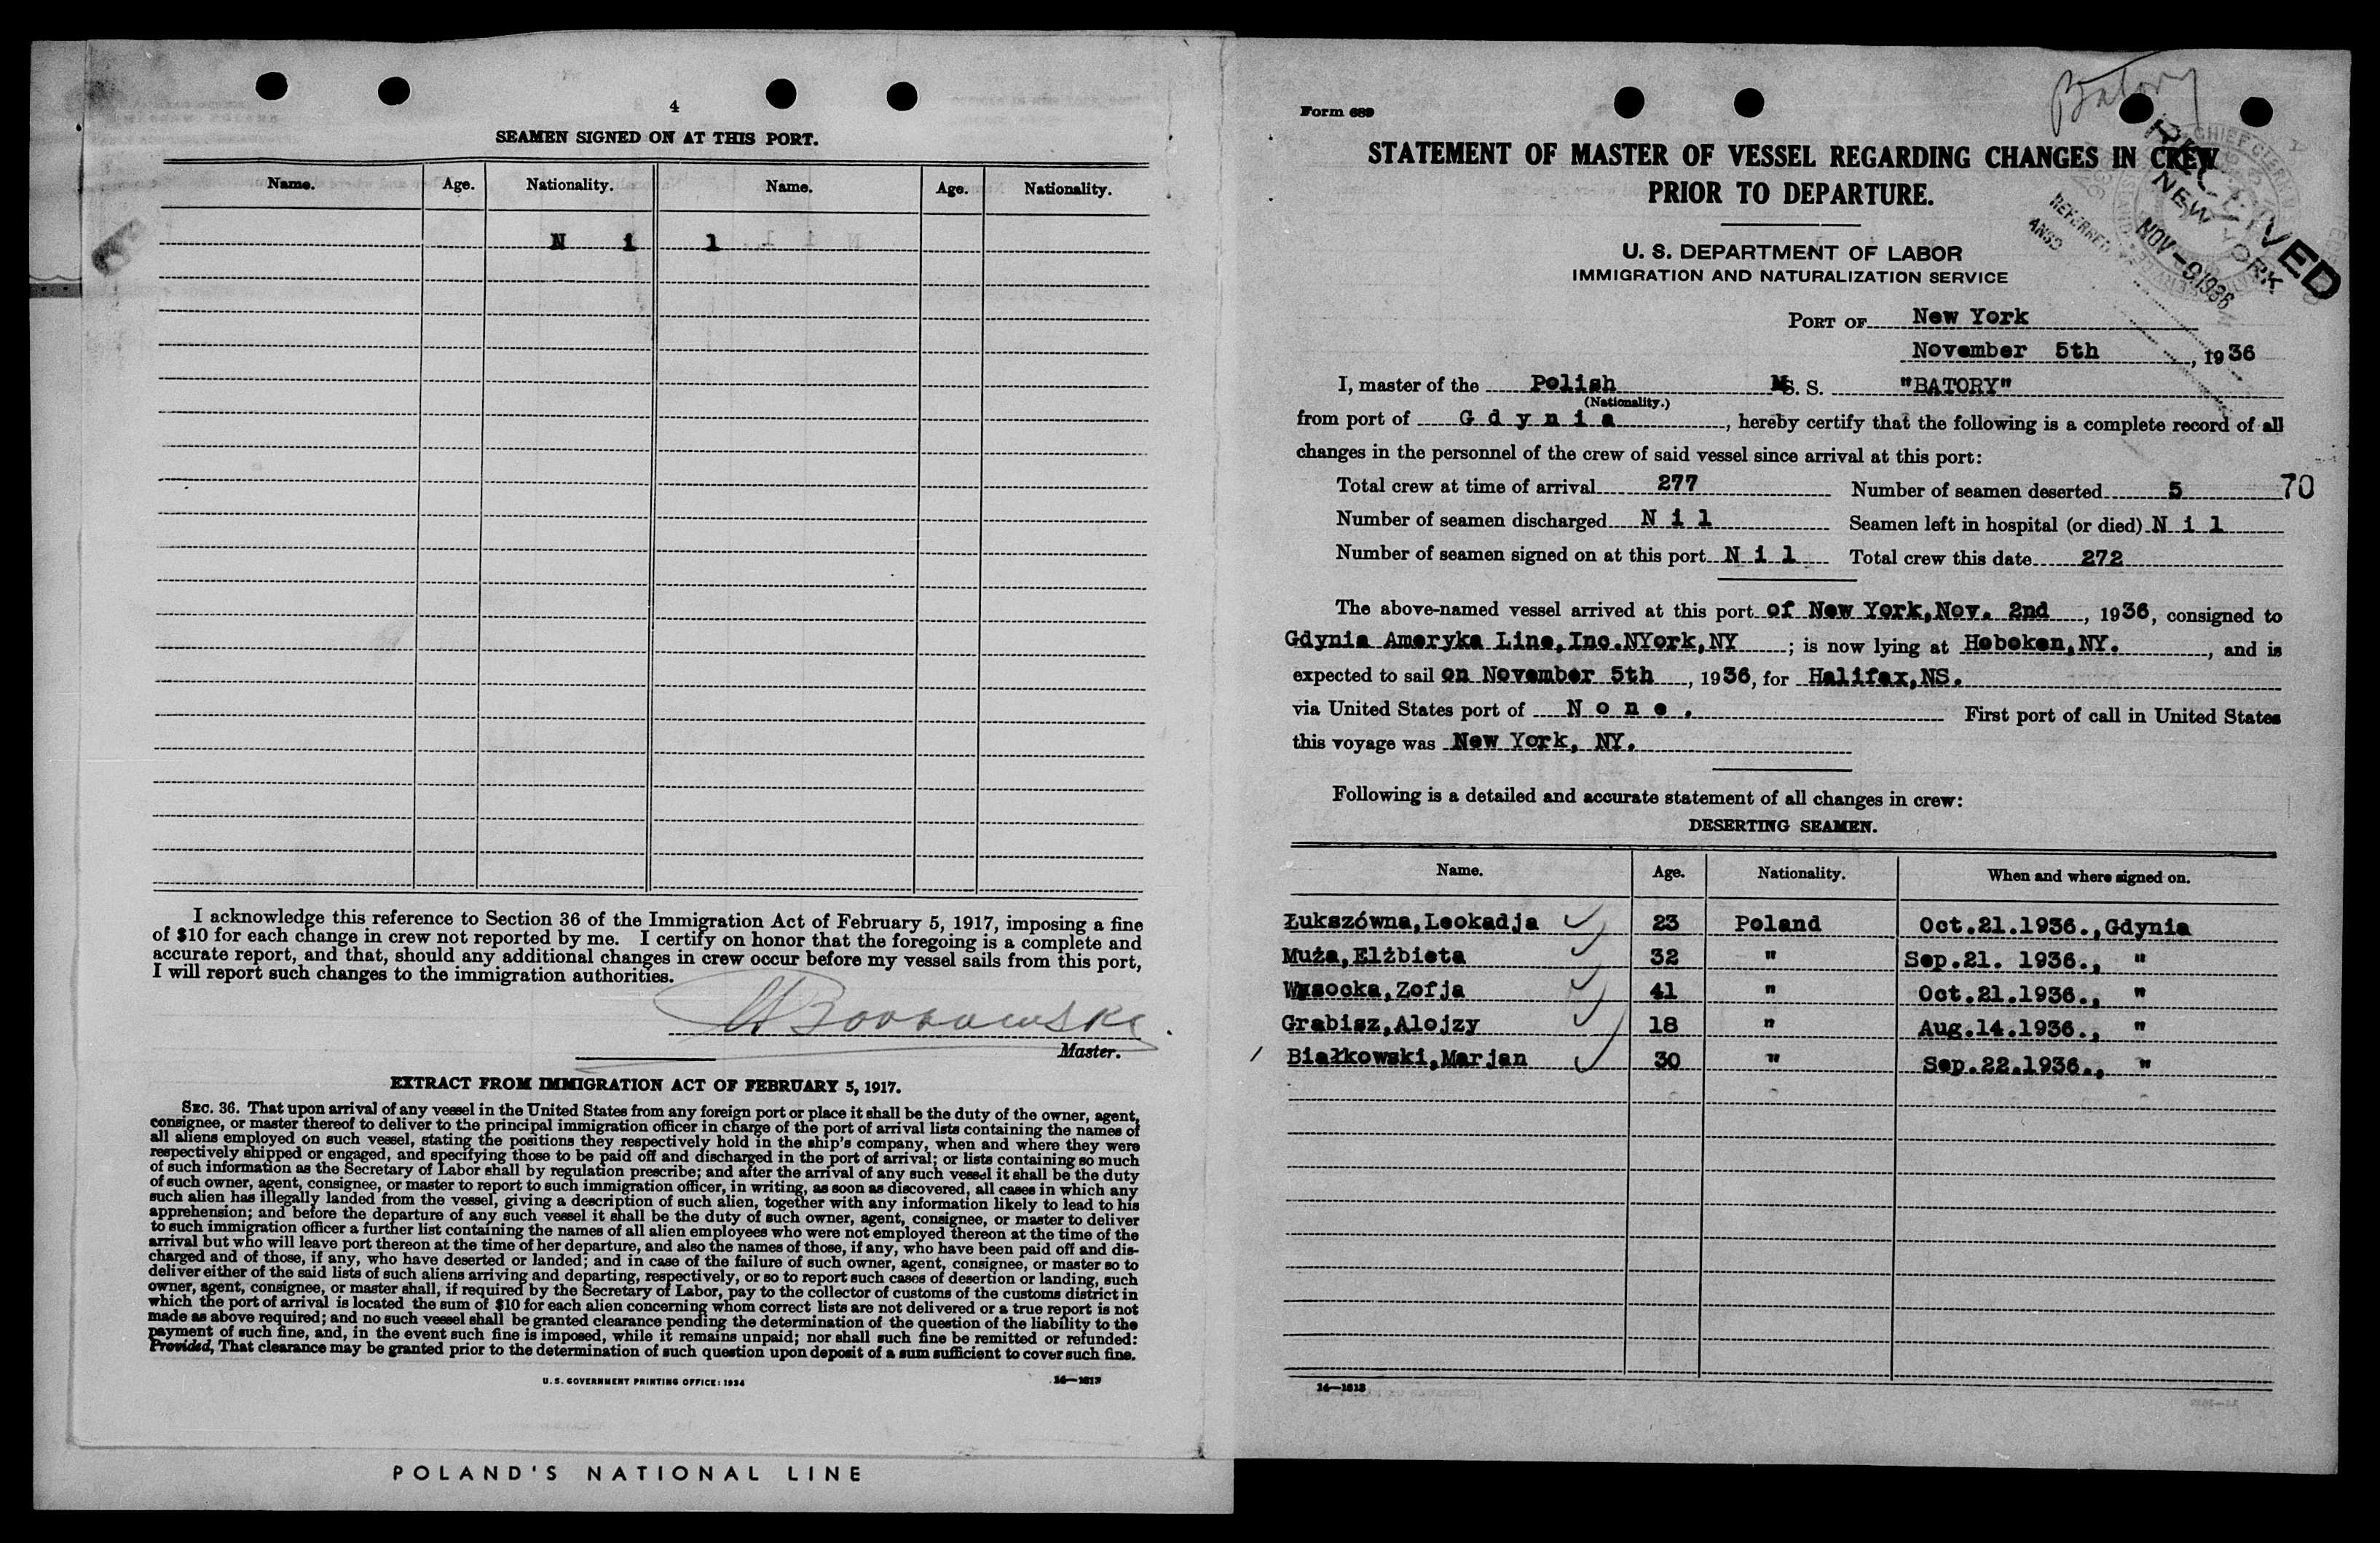 4
SEAMEN SIGNED ON AT THIS PORT.
Name. Age. Nationality. Name. Age. Nationality.
N i l
I acknowledge this reference to Section 36 of the Immigration Act of February 5, 1917, imposing a fine
of $10 for each change in crew not reported by me. I certify on honor that the foregoing is a complete and
accurate report, and that, should any additional changes in crew occur before my vessel sails from this port,
I will report such changes to the immigration authorities.
Master.
EXTRACT FROM IMMIGRATION ACT OF FEBRUARY 5, 1917.
SEC. 36. That upon arrival of any vessel in the United States from any foreign port or place it shall be the duty of the owner, agent,
consignee, or master thereof to deliver to the principal immigration officer in charge of the port of arrival lists containing the names of
all aliens employed on such vessel, stating the positions they respectively hold in the ship's company, when and where they were
respectively shipped or engaged, and specifying those to be paid off and discharged in the port of arrival; or lists containing so much
of such information as the Secretary of Labor shall by regulation prescribe; and after the arrival of any such vessel it shall be the duty
of such owner, agent, consignee, or master to report to such immigration officer, in writing, as soon as discovered, all cases in which any
such alien has illegally landed from the vessel, giving a description of such alien, together with any information likely to lead to his
apprehension; and before the departure of any such vessel it shall be the duty of such owner, agent, consignee, or master to deliver
to such immigration officer a further list containing the names of all alien employees who were not employed thereon at the time of the
arrival but who will leave port thereon at the time of her departure, and also the names of those, if any, who have been paid off and dis-
charged and of those, if any, who have deserted or landed; and in case of the failure of such owner, agent, consignee, or master so to
deliver either of the said lists of such aliens arriving and departing, respectively, or so to report such cases of desertion or landing, such
owner, agent, consignee, or master shall, if required by the Secretary of Labor, pay to the collector of customs of the customs district in
which the port of arrival is located the sum of $10 for each alien concerning whom correct lists are not delivered or a true report is not
made as above required; and no such vessel shall be granted clearance pending the determination of the question of the liability to the
payment of such fine, and, in the event such fine is imposed, while it remains unpaid; nor shall such fine be remitted or refunded:
Provided, That clearance may be granted prior to the determination of such question upon deposit of a sum sufficient to cover such fine.
U. S. GOVERNMENT PRINTING OFFICE: 1934 14—1613
POLAND'S NATIONAL LINE
Batory
Form 689
STATEMENT OF MASTER OF VESSEL REGARDING CHANGES IN CREW
PRIOR TO DEPARTURE.
RECEIVED
NEW YORK
NOV - 9 1936
REFERRED
U. S. DEPARTMENT OF LABOR
IMMIGRATION AND NATURALIZATION SERVICE
PORT OF New York
November 5th, 1936
I, master of the Polish M. S. "BATORY"
(Nationality.)
from port of G d y n i a, hereby certify that the following is a complete record of all
changes in the personnel of the crew of said vessel since arrival at this port:
Total crew at time of arrival 277 Number of seamen deserted 5 70
Number of seamen discharged N i l Seamen left in hospital (or died) N i l
Number of seamen signed on at this port N i l Total crew this date 272
The above-named vessel arrived at this port of New York, Nov. 2nd, 1936, consigned to
Gdynia Ameryka Line, Inc. NYork, NY; is now lying at Hoboken, NY., and is
expected to sail on November 5th, 1936, for Halifax, NS.
via United States port of N o n e . First port of call in United States
this voyage was New York, NY.
Following is a detailed and accurate statement of all changes in crew:
DESERTING SEAMEN.
Name. Age. Nationality. When and where signed on.
Łukszówna, Leokadja 23 Poland Oct.21.1936., Gdynia
Muża, Elżbieta 32 " Sep.21. 1936., "
Wysocka, Zofja 41 " Oct.21.1936., "
Grabisz, Alojzy 18 " Aug.14.1936., "
Białkowski, Marjan 30 " Sep.22.1936., "
14—1613